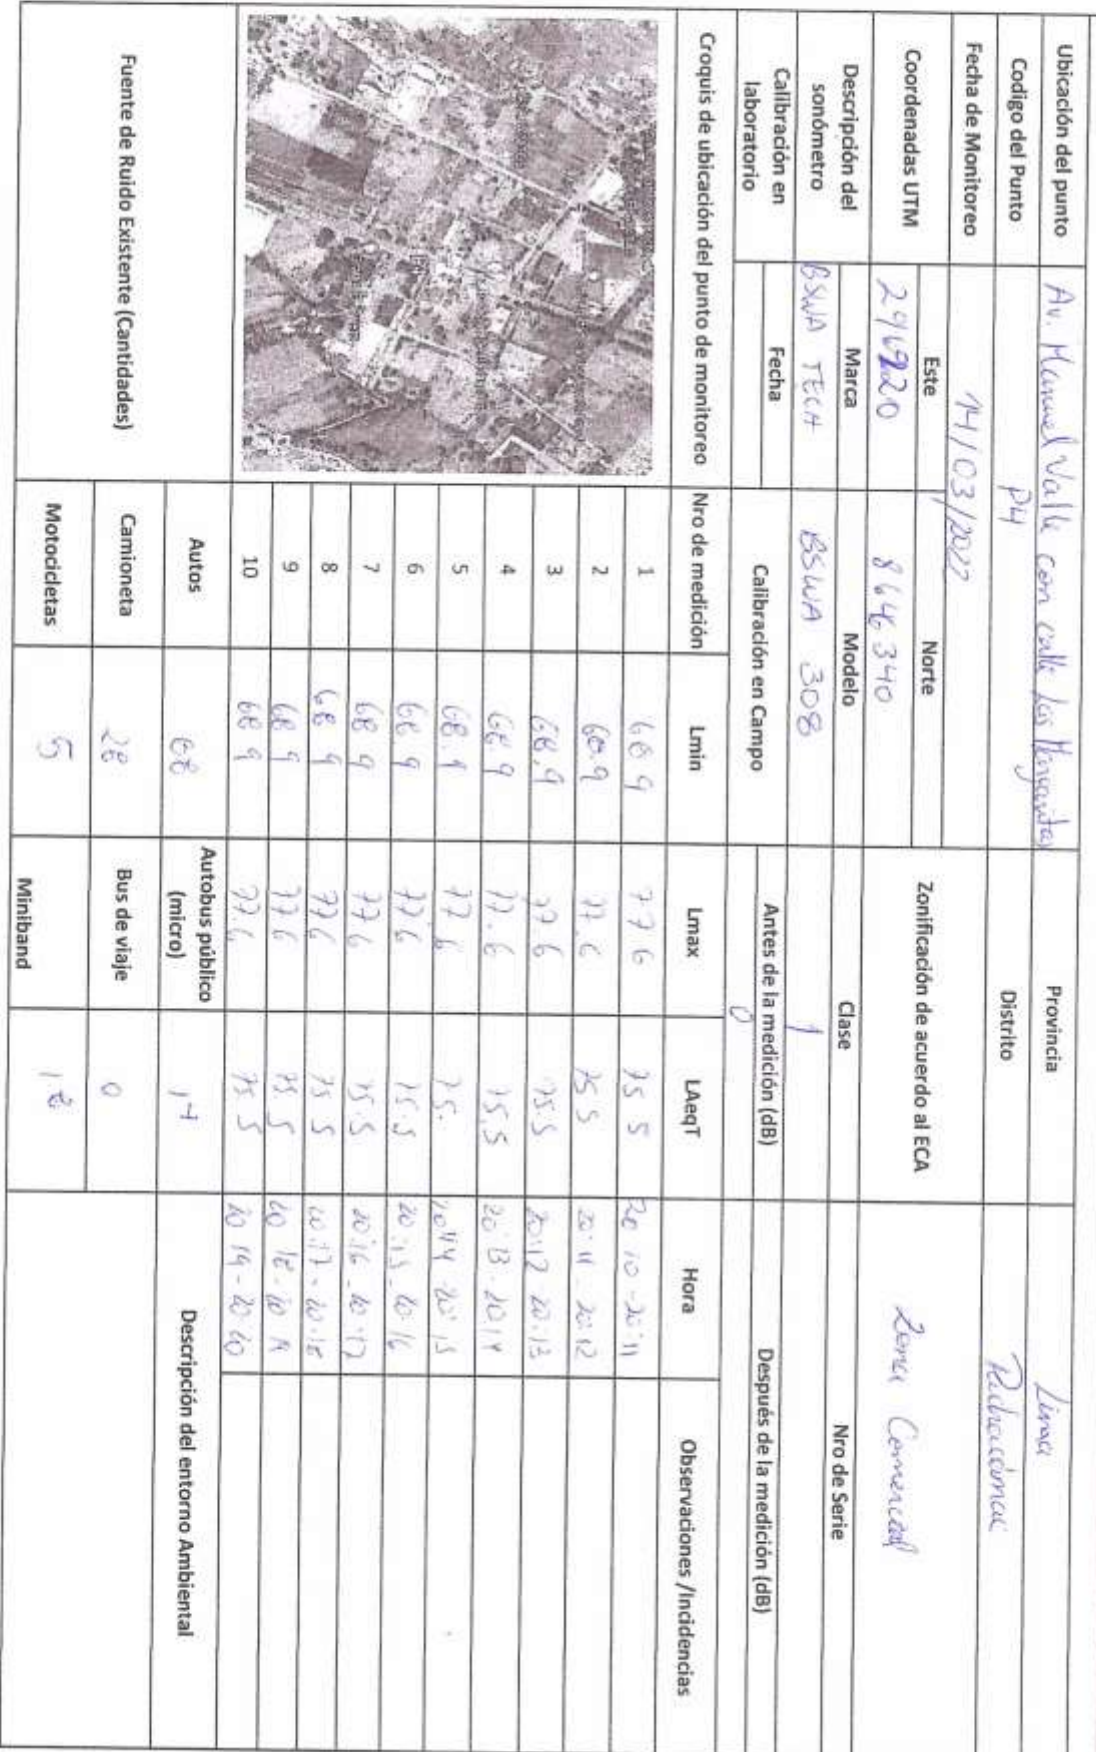 Ubicación del punto Av. Manuel Valle con calle las Margaritas Provincia Lima
Codigo del Punto P4 Distrito Pachacámac
Fecha de Monitoreo 14/03/2022 Zonificación de acuerdo al ECA Zona Comercial
Coordenadas UTM Este Norte
8646340
Descripción del sonómetro Marca Modelo Clase Nro de Serie
BSWA TECH BSWA 308 1
Calibración en laboratorio Fecha Calibración en Campo Antes de la medición (dB) Después de la medición (dB)
0
Croquis de ubicación del punto de monitoreo Nro de medición Lmin Lmax LAeqT Hora Observaciones /Incidencias
1 68 9 77 6 75 5 20 10 - 20:11
2 68.9 77.6 75 5 20:11 - 20:12
3 68.9 77.6 75.5 20:12 20:13
4 68.9 77.6 75.5 20:13 - 20:14
5 68.9 77 6 75. 20:15
6 68.9 77.6 75.5 20:15 - 20:16
7 68 9 77 6 75.5 20:16 - 20:17
8 68 9 77 6 75 5 20:17 - 20:18
9 68 9 77 6 75 5 20 18 - 20 19
10 68 9 77.6 75 5 20 19 - 20:20
Fuente de Ruido Existente (Cantidades) Autos Autobus público (micro) Descripción del entorno Ambiental
Camioneta 28 Bus de viaje 0
Motocicletas 5 Miniband